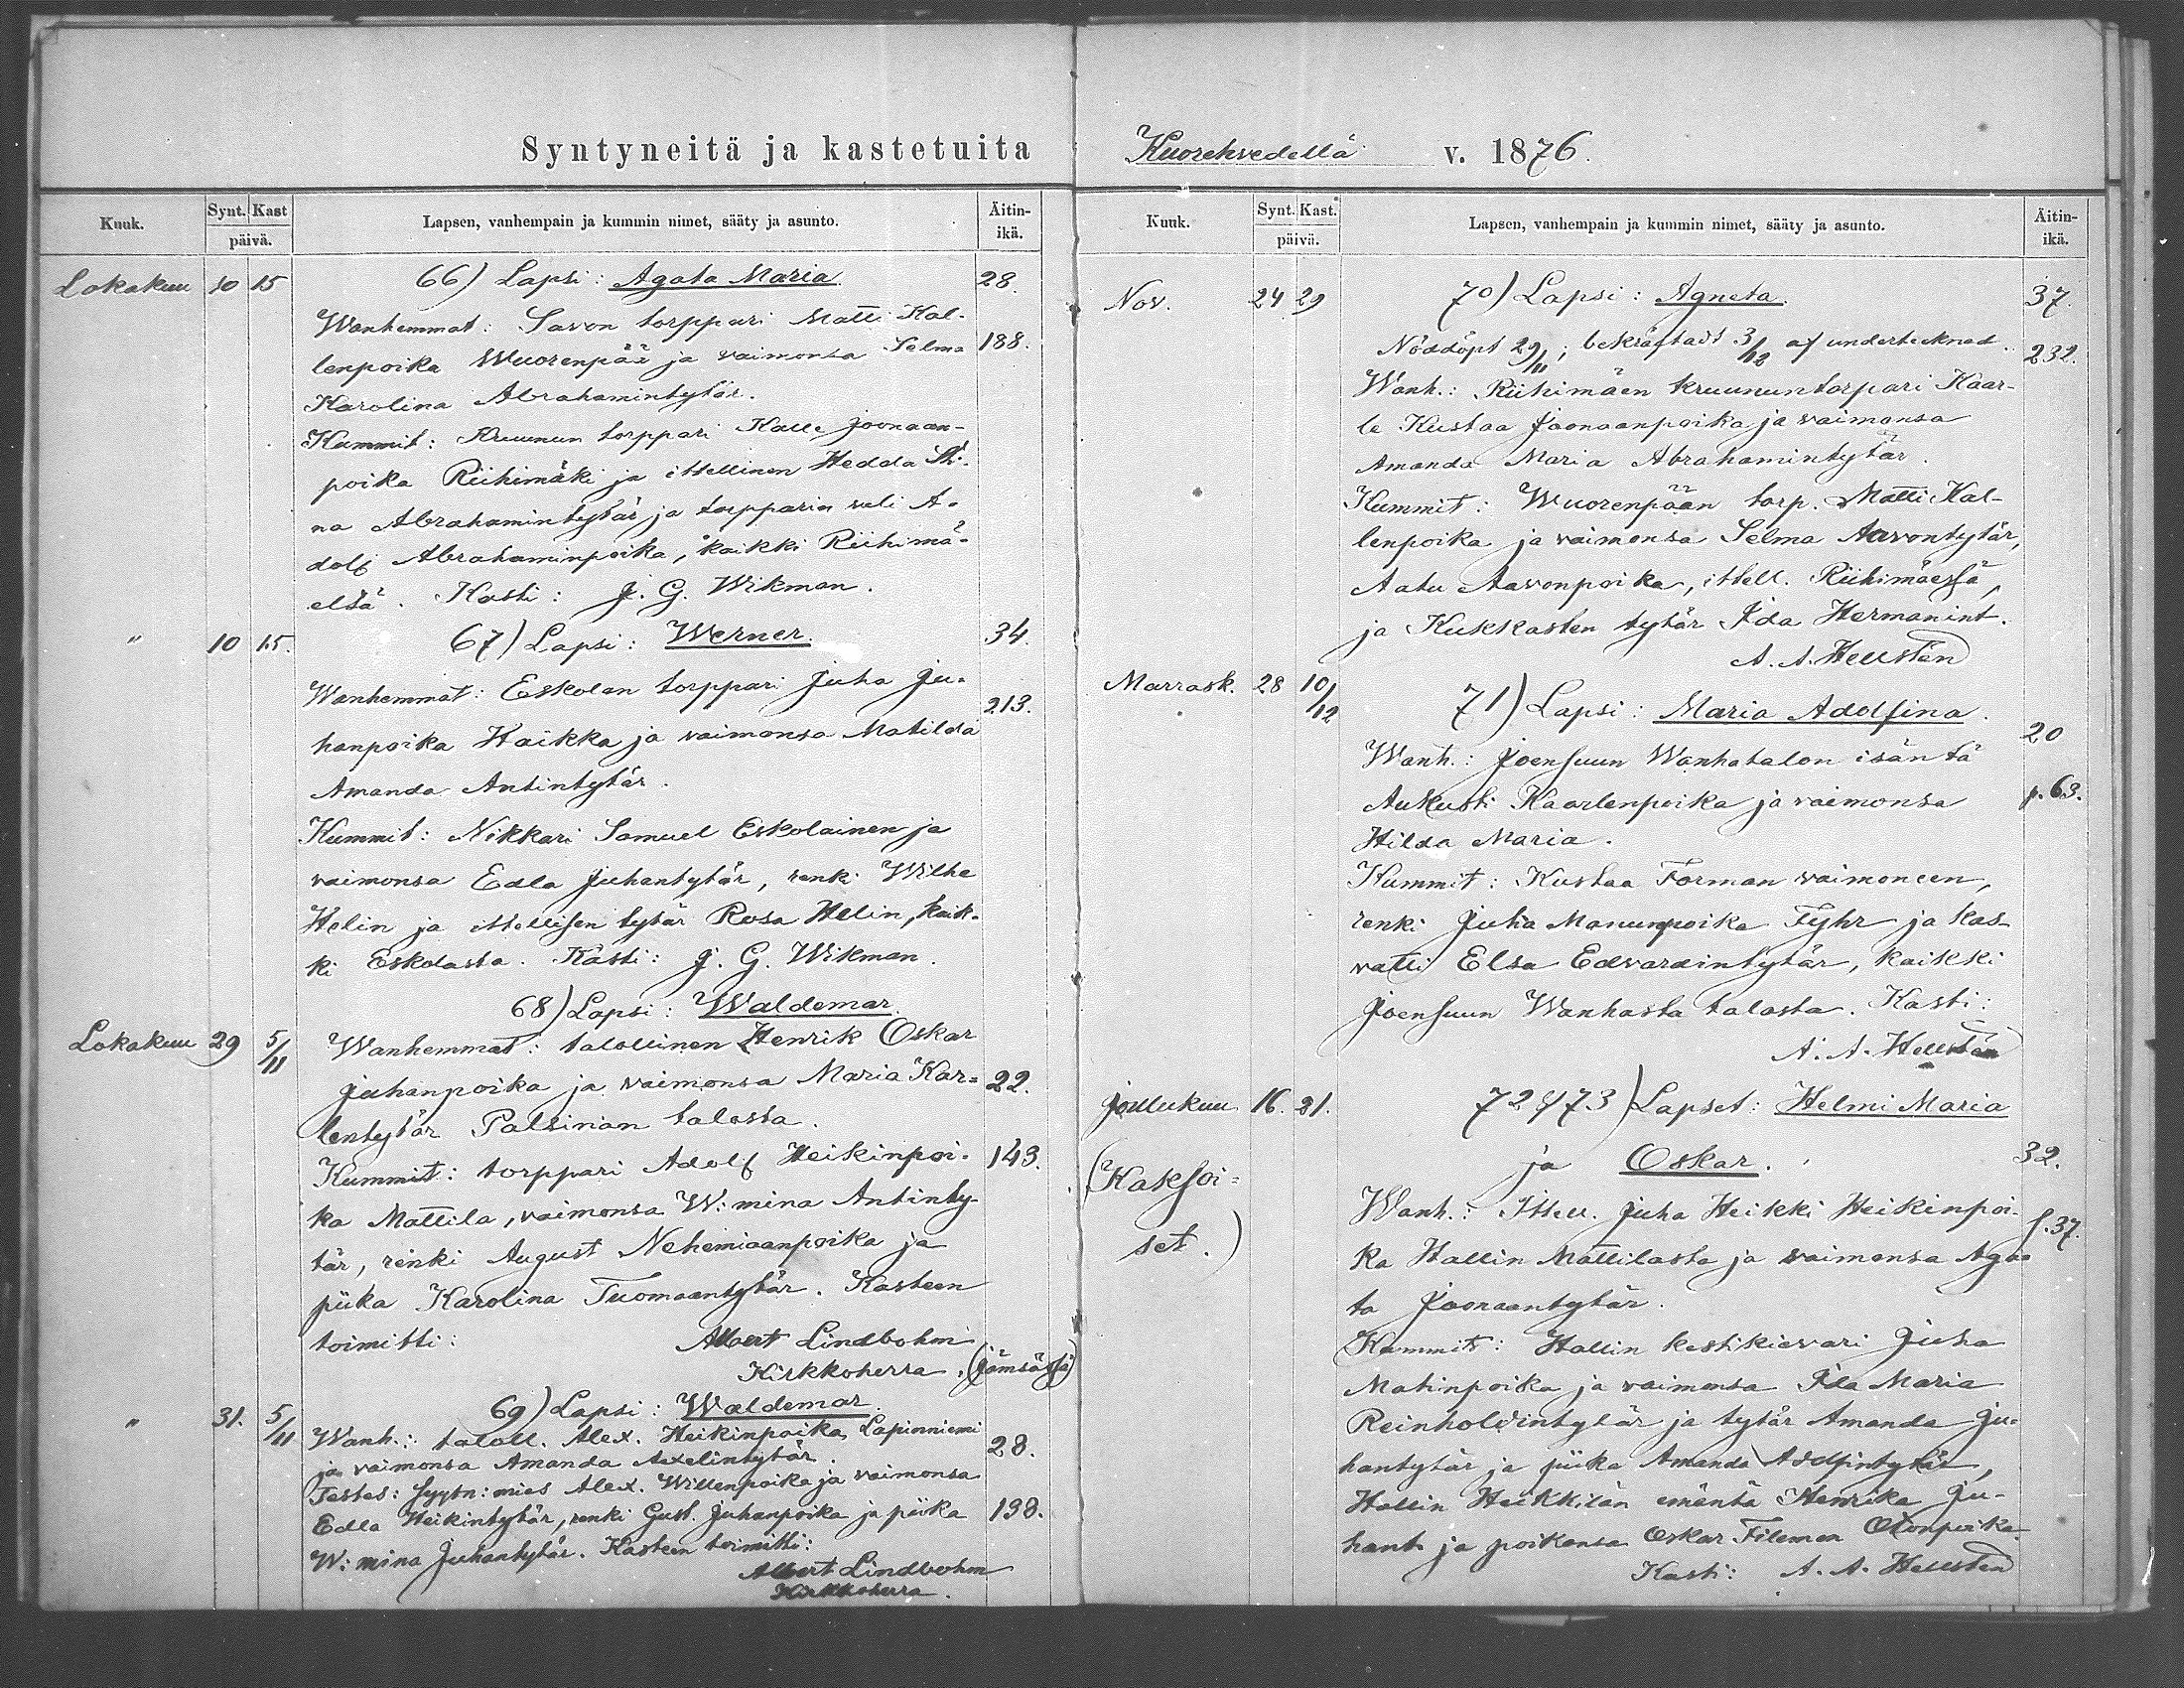 Syntyneitä ja kastetuita
Kuuk.
Synt. Kast
päivä.
Lapsen, vanhempain ja kummin nimet, sääty ja asunto.
Äitin-
ikä.
Lokakuu 10 15 66) Lapsi: Agata Maria. 28.
Wanhemmat: Savon torppari Matti Kal-
lenpoika Wuorenpää ja vaimonsa Selma 188.
Karolina Abrahamintytär.
Kummit: Kruunun torppari Kalle Joonaan-
poika Riihimäki ja ittellinen Hedda Sti-
na Abrahamintytär ja torpparin veli A-
dolf Abrahaminpoika, kaikki Riihimä-
eltä. Kasti: J. G. Wikman.
" 10 15. 67) Lapsi: Werner. 34.
Wanhemmat: Eskolan torppari Juha Ju-
213.
hanpoika Haikka ja vaimonsa Matilda
Amanda Antintytär.
Kummit: Nikkari Samuel Eskolainen ja
vaimonsa Edla Juhantytär, renki Wilhe
Helin ja ittellisen tytär Rosa Helin, kaik-
ki Eskolasta. Kasti: J. G. Wikman.
68) Lapsi: Waldemar.
Lokakuu 29 5/11 Wanhemmat: talollinen Henrik Oskar
Juhanpoika ja vaimonsa Maria Kar- 22.
lentytär Palsinan talosta.
Kummit: torppari Adolf Heikinpoi- 143.
ka Mattila, vaimonsa W:mina Antinty-
tär, renki August Nehemiaanpoika ja
piika Karolina Tuomaantytär. Kasteen
toimitti: Albert Lindbohm
Kirkkoherra. (Jämsässä)
" 31. 5/11 69) Lapsi: Waldemar.
Wanh.: taloll. Alex. Heikinpoika Lapinniemi
ja vaimonsa Amanda Axelintytär. 28.
Testes: syytn: mies Alex. Willenpoika ja vaimonsa
Edla Heikintytär, renki Gust. Juhanpoika ja piika 138.
W:mina Juhantytär. Kasteen toimitti:
Albert Lindbohm
Kirkkoherra.
Kuorehvedellä v. 1876.
Kuuk.
Synt. Kast.
päivä.
Lapsen, vanhempain ja kummin nimet, sääty ja asunto.
Äitin-
ikä.
Nov. 24 29 70) Lapsi: Agneta. 37.
Nöddöpt 29/11; bekräftadt 3/12 af undertecknad. 232.
Wanh.: Riihimäen kruununtorpari Kaar-
le Kustaa Joonaanpoika ja vaimonsa
Amanda Maria Abrahamintytär.
Kummit: Wuorenpään torp. Matti Kal-
lenpoika ja vaimonsa Selma Aavontytär,
Aatu Aavonpoika, ittell. Riihimäessä,
ja Kukkasten tytär Ida Hermanint.
A. A. Hellstén
Marrask. 28 10/12 71) Lapsi: Maria Adolfina.
20
Wanh.: Joensuun Wanhatalon isäntä
Aukusti Kaarlenpoika ja vaimonsa p. 63.
Hilda Maria.
Kummit: Kustaa Forman vaimoneen,
renki Juha Manunpoika Fyhr ja kas-
vatti Elsa Edvardintytär, kaikki
Joensuun Wanhasta talosta. Kasti:
A. A. Hellstén
Joulukuu 16. 21. 72 & 73) Lapset: Helmi Maria
(Kaksoi- ja Oskar. 32.
set.) Wanh.: Ittell. Juha Heikki Heikinpoi-
p. 37.
ka Hallin Mattilasta ja vaimonsa Aga-
ta Joonaantytär.
Kummit: Hallin kestikievari Juha
Matinpoika ja vaimonsa Ida Maria
Reinholdintytär ja tytär Amanda Ju-
hantytär ja piika Amanda Adolfintytär,
Hallin Heikkilän emäntä Henrika Ju-
hant. ja poikansa Oskar Fileman Otonpoika.
Kasti: A. A. Hellstén